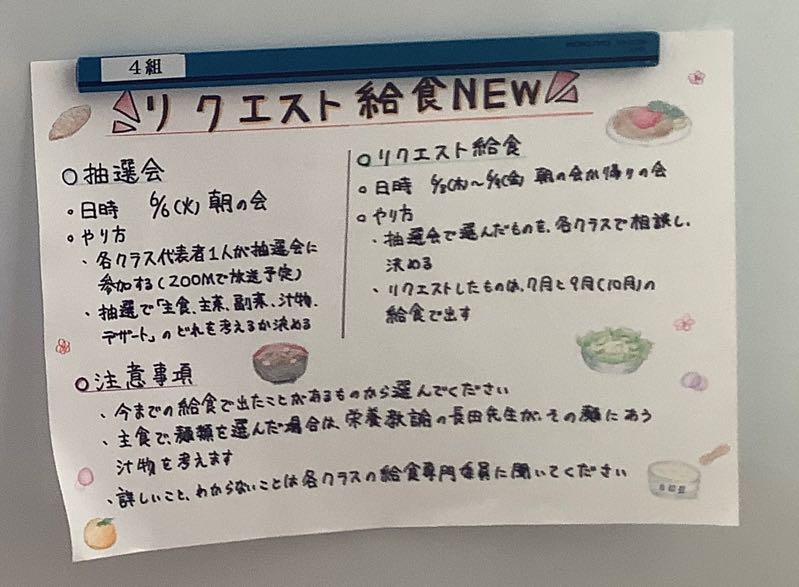 4組
リクエスト給食NEW
○抽選会
・日時 6/6(火) 朝の会
・やり方
、各クラス代表者1人が抽選会に
参加する(ZOOMで放送予定)
、抽選で「主食、主菜、副菜、汁物、
デザート」のどれを考えるか決める
○リクエスト給食
・日時 (木)〜(金) 朝の会か帰りの会
・やり方
、抽選会で選んだものを、各クラスで相談し、
決める
、リクエストしたものは、7月と9月(10月)の
給食で出す
○注意事項
、今までの給食で出たことがあるものから選んでください
、主食で、麺類を選んだ場合は、栄養教諭の長田先生が、その麺にあう
汁物を考えます
、詳しいこと、わからないことは各クラスの給食専門委員に聞いてください